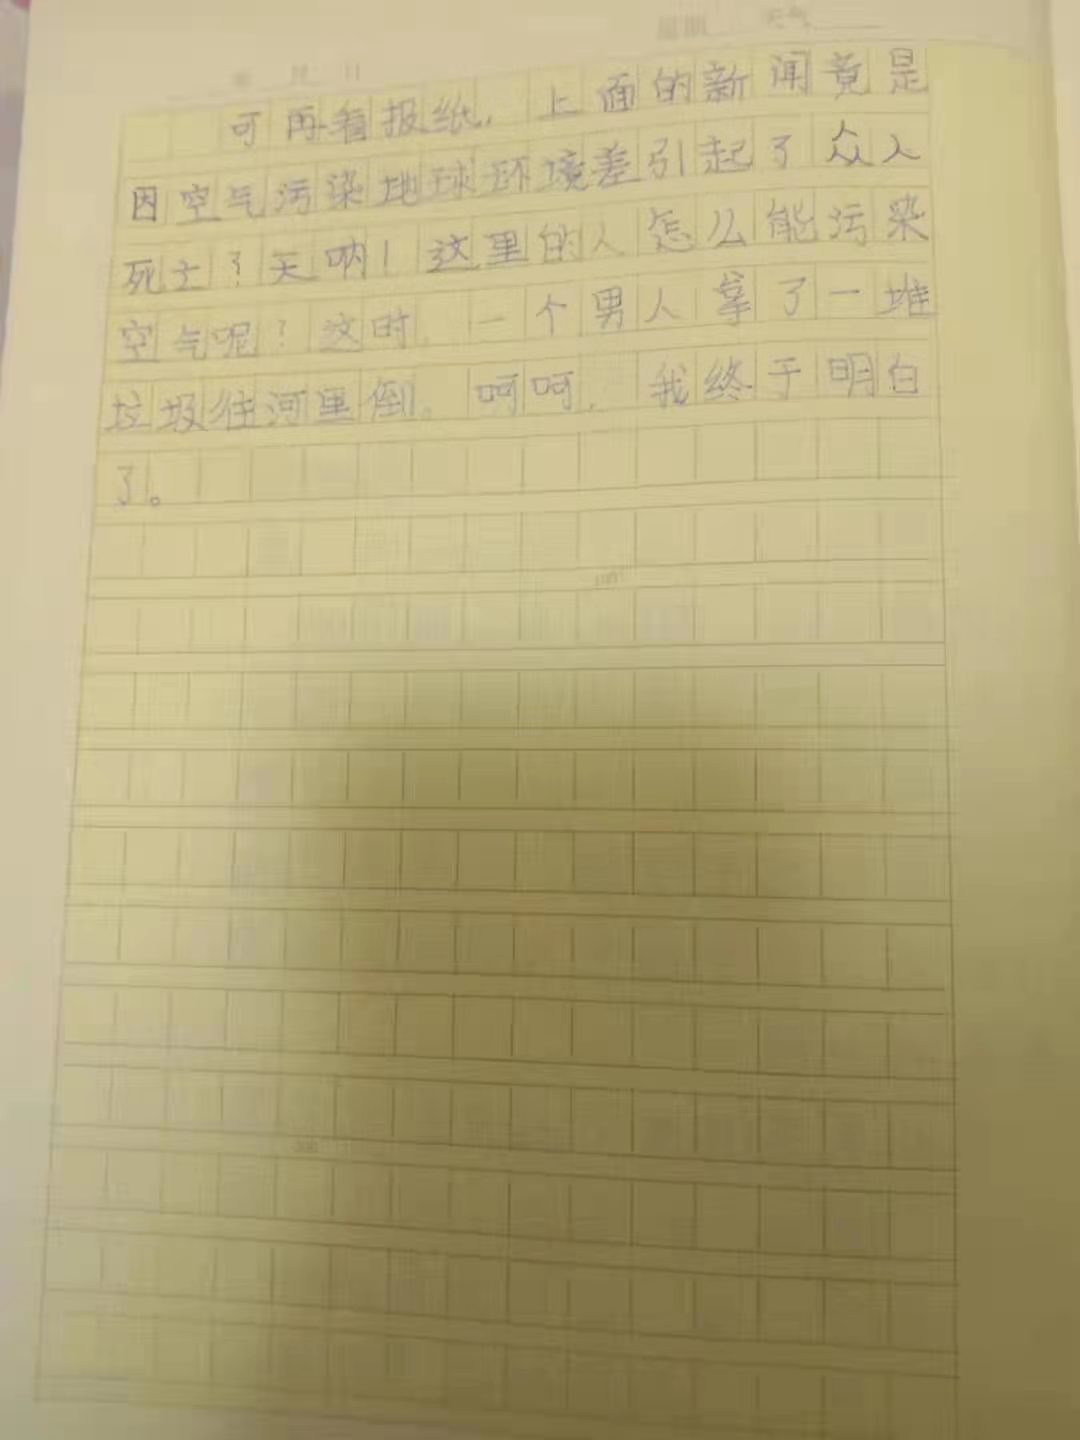 星期 天气
年 月 日
可再看报纸，上面的新闻竟是
因空气污染地球环境差引起了众人
死亡？天呐！这里的人怎么能污染
空气呢？这时，一个男人拿了一堆
垃圾往河里倒。呵呵，我终于明白
了。